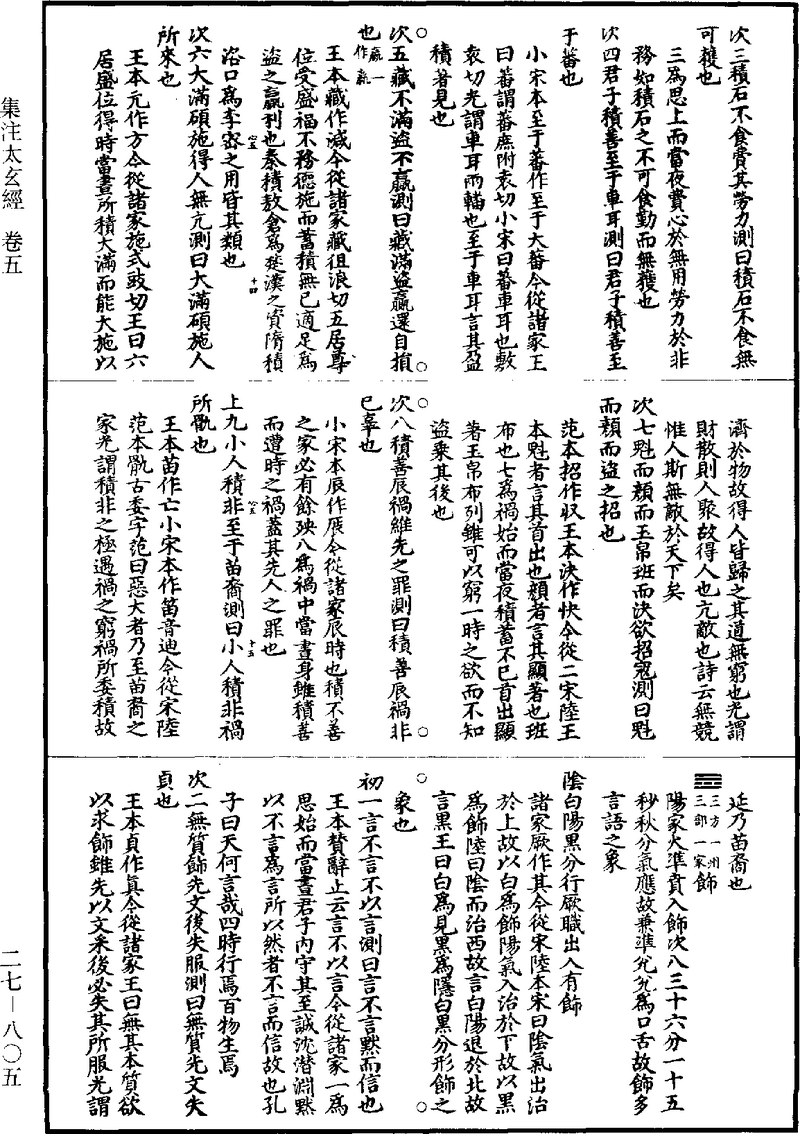 次三積石不食費其勞力測曰積石不食無
可穫也
三爲思上而當夜費心於無用勞力於非
務如積石之不可食勤而無穫也
次四君子積善至于車耳測曰君子積善至
于蕃也
小宋本至于蕃作至于大蕃今從諸家王
曰蕃謂蕃庶附袁切小宋曰蕃車耳也敷
袁切光謂車耳兩轓也至于車耳言其盈
積著見也
次五藏不滿盜不贏測曰藏滿盜贏還自損
也贏一作羸
王本藏作減今從諸家藏徂浪切五居尊
位受盛福不務德施而蓄積無已適足爲
盜之贏利也秦積敖倉爲楚漢之資隋積
洛口爲李密之用皆其類也
次六大滿碩施得人無亢測曰大滿碩施人
所來也
王本元作方今從諸家施式豉切王曰六
居盛位得時當晝所積大滿而能大施以
濟於物故得人皆歸之其道無窮也光謂
財散則人聚故得人也亢敵也詩云無競
惟人斯無敵於天下矣
次七魁而顏而玉帛班而決欲招寇測曰魁
而顏而盜之招也
范本招作収王本決作快今從二宋陸王
本魁者言其首出也顏者言其顯著也班
布也七爲禍始而當夜積蓄不已首出顯
著玉帛布列雖可以窮一時之欲而不知
盜乗其後也
次八積善辰禍維先之罪測曰積善辰禍非
已辜也
小宋本辰作展今從諸家辰時也積不善
之家必有餘殃八爲禍中當晝身雖積善
而遭時之禍蓋其先人之罪也
上九小人積非至于苗裔測曰小人積非禍
所骫也
王本苗作亡小宋本作笛音迪今從宋陸
范本骫古委字范曰惡大者乃至苗裔之
家光謂積非之極遇禍之窮禍所委積故
延乃苗裔也
䷀三方一州三部一家飾
陽家火準賁入飾次八三十六分一十五
秒秋分氣應故兼準兊兊爲口舌故飾多
言語之象
陰白陽黑分行厥職出入有飾
諸家厥作其今從宋陸本宋曰陰氣出治
於上故以白爲飾陽氣入治於下故以黑
爲飾陸曰陰而治西故言白陽退於北故
言黑王曰白爲見黑爲隱白黑分形飾之
象也
初一言不言不以言測曰言不言默而信也
王本賛辭止云言不以言今從諸家一爲
思始而當晝君子内守其至誠沈潛淵默
以不言爲言所以然者不言而信故也孔
子曰天何言哉四時行焉百物生焉
次二無質飾先文後失服測曰無質先文失
貞也
王本貞作真今從諸家王曰無其本質欲
以求飾雖先以文采後必失其所服光謂
集注太玄經　卷五
二七—八〇五